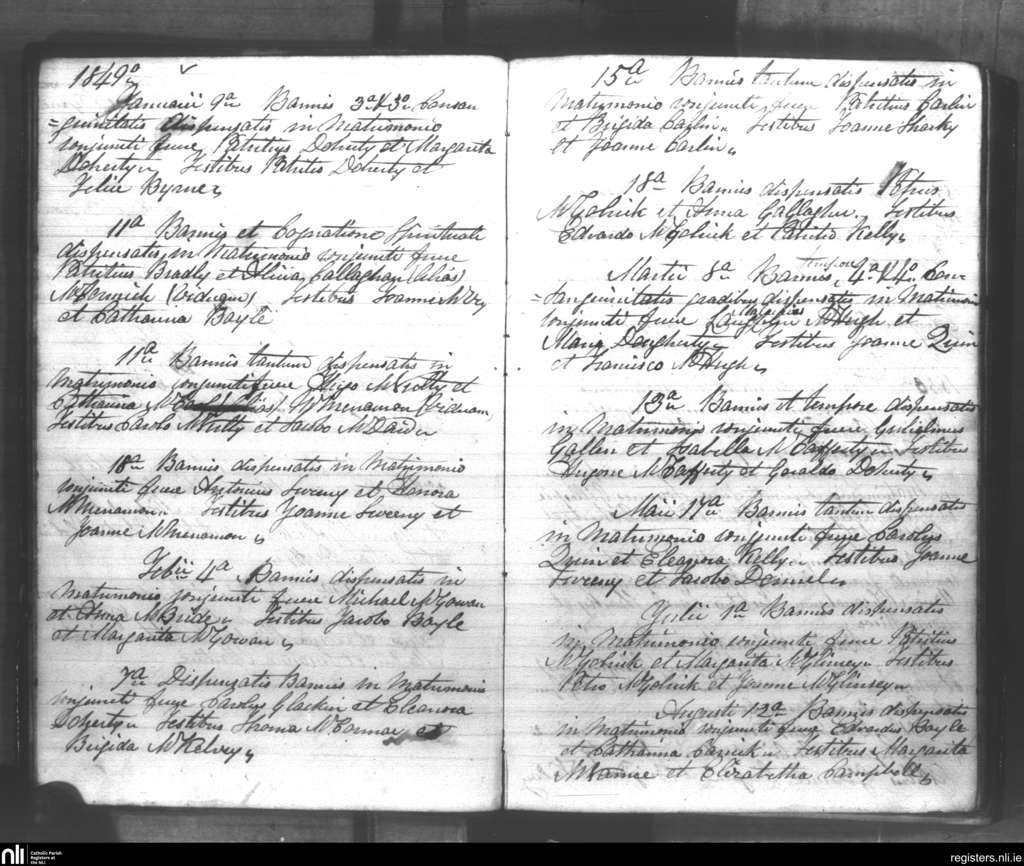 1849o
Januarii 9a Bannis 3a & 3o Consan
=guinitatis dispensatis in Matrimonio
conjuncti fuere Patritius Doherty et Margarita
Doherty. Testibus Patritio Doherty et
Felice Byrne
11a Bannis et Cognatione Spirituali
dispensatis in Matrimonio conjuncti fuere
Patritius Bradly et Alicia Callaghan (alias)
McCormick (viduam). Testibus Joanne
et Catharina Boyle
11a Bannis tantum dispensatis in
Matrimonio conjuncti fuere Hugo et
Catharina (alias) McMenamon (viduam)
Testibus Carolo et Jacobo McDaid
18a Bannis dispensatis in Matrimonio
conjuncti fuere Antonius Sweeny et Honora
McMenamon. Testibus Joanne Sweeny et
Joanne McMenamon
Febii 4a Bannis dispensatis in
Matrimonio conjuncti fuere Michael McGowan
et Anna McBride. Testibus Jacobo Boyle
et Margarita McGowan
7a Dispensatis Bannis in Matrimonio
conjuncti fuere Carolus Glackin et Eleanora
Doherty. Testibus Thoma McCormac et
Brigida McKelvey
15a Bannis tantum dispensatis in
Matrimonio conjuncti fuere Patritius Carlin
et Brigida Carlin. Testibus Joanne Sharky
et Joanne Carlin
18a Bannis dispensatis Petrus
McGolrick et Anna Gallagher. Testibus
Edvardo McGolrick et Patritio Kelly
Martii 8a Bannis, tempore 4a & 4o Con
=sanguinitatis gradibus dispensatis in Matrimonio
conjuncti fuere McHugh et
Mary Dougherty. Testibus Joanne Quin
et Francisco McHugh
13a Bannis et tempore dispensatis
in Matrimonio conjuncti fuere Gulielmus
Gallen et Isabella McCafferty. Testibus
Hugone McCafferty et Geraldo Doherty
Maii 17a Bannis tantum dispensatis
in Matrimonio conjuncti fuere Carolus
Quin et Eleanora Kelly. Testibus Joanne
Sweeny et Jacobo
Julii 1a Bannis dispensatis
in Matrimonio conjuncti fuere Patritius
McGolrick et Margarita McGlinsey. Testibus
Petro McGolrick et Joanne McGlinsey
Augusti 13a Bannis dispensatis
in Matrimonio conjuncti fuere Edvardus Boyle
et Catharina. Testibus Margarita
et Elizabetha Campbell
nli Catholic Parish
Registers at
the NLI
registers.nli.ie